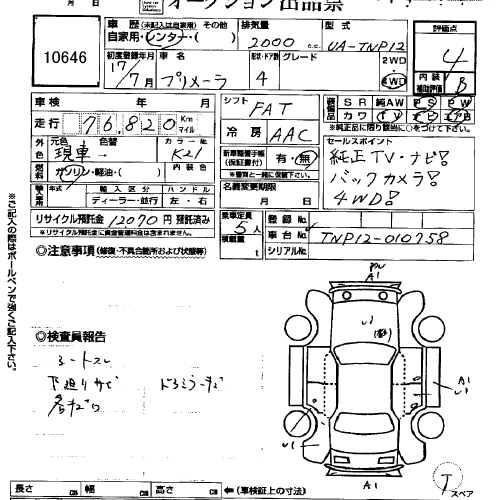 月 日
オークション出品票
10646
車歴 (未記入は自家用) その他
自家用・レンター・( )
排気量
2000 c.c.
型式
UA-TNP12
評価点
4
初度登録年月
17年7月
車名
プリメーラ
形状・ドア数
4
グレード
2WD
4WD
内装補助評価
B
車検 年 月
走行 76,820 Km マイル
シフト
FAT
冷房
AAC
装備品
SR 純AW PS PW
カワ TV ナビ エアB
※純正品に限り該当に○をつけて下さい。
外色 元色 色替
現車
カラー No.
K21
燃料
ガソリン・軽油・( )
内装色
新車整備手帳
(保証書付)
有・無
※書類と一緒に保管して下さい。
セールスポイント
純正TV・ナビ!
バックカメラ!
4WD!
輸入車
年式 輸入区分 ハンドル
ディーラー・並行 左・右
名義変更期限
月 日
リサイクル預託金 12070円 預託済み
※リサイクル預託金に資金管理料金は含まれません。
乗車定員
5人
積載量
t
登録 No.
車台 No.
TNP12-010758
シリアルNo.
◎注意事項 (修復・不具合箇所および状態等)
※ご記入の際はボールペンで強くご記入下さい。
◎検査員報告
シートスレ
下廻りサビ
各キズ
A1
A1
A1
T
スペア
長さ cm 幅 cm 高さ cm ← (車検証上の寸法)